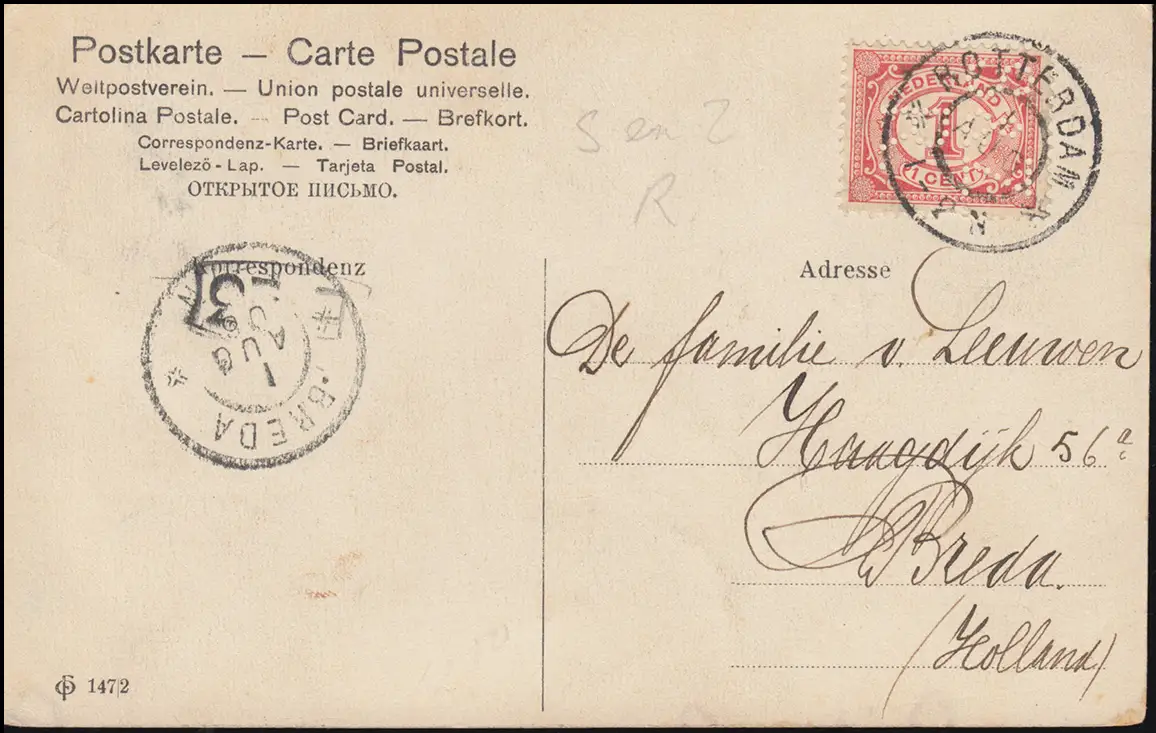 Postkarte — Carte Postale
Weltpostverein. — Union postale universelle.
Cartolina Postale. — Post Card. — Brefkort.
Correspondenz-Karte. — Briefkaart.
Levelező-Lap. — Tarjeta Postal.
ОТКРЫТОЕ ПИСЬМО.
S en 2
R.
NEDERLAND
1
1 CENT
ROTTERDAM
AUG
N
Korrespondenz
BREDA
1 AUG
Adresse
De familie v. Leeuwen
Haagdijk 56a
Breda.
(Holland)
1472